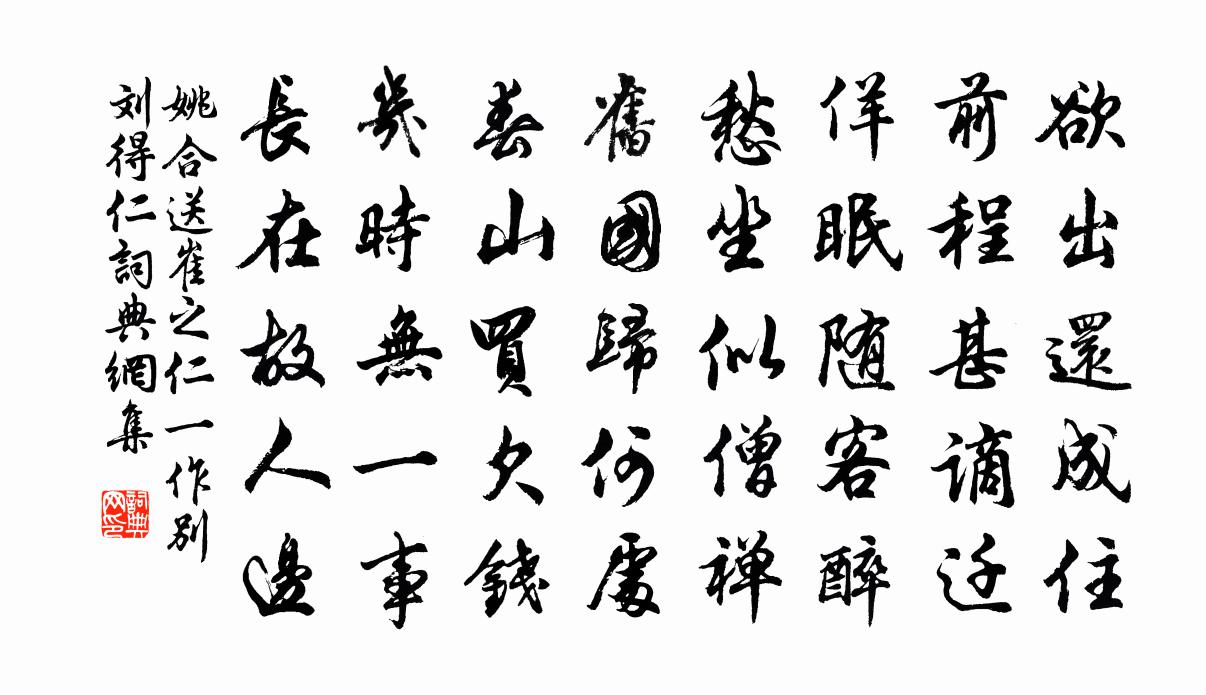 欲出還成住
前程甚謫迁
佯眠随客醉
愁坐似僧禅
舊國歸何處
春山買欠錢
幾時無一事
長在故人邊
姚合送崔之仁一作别
刘得仁詞典網集
詞典网印